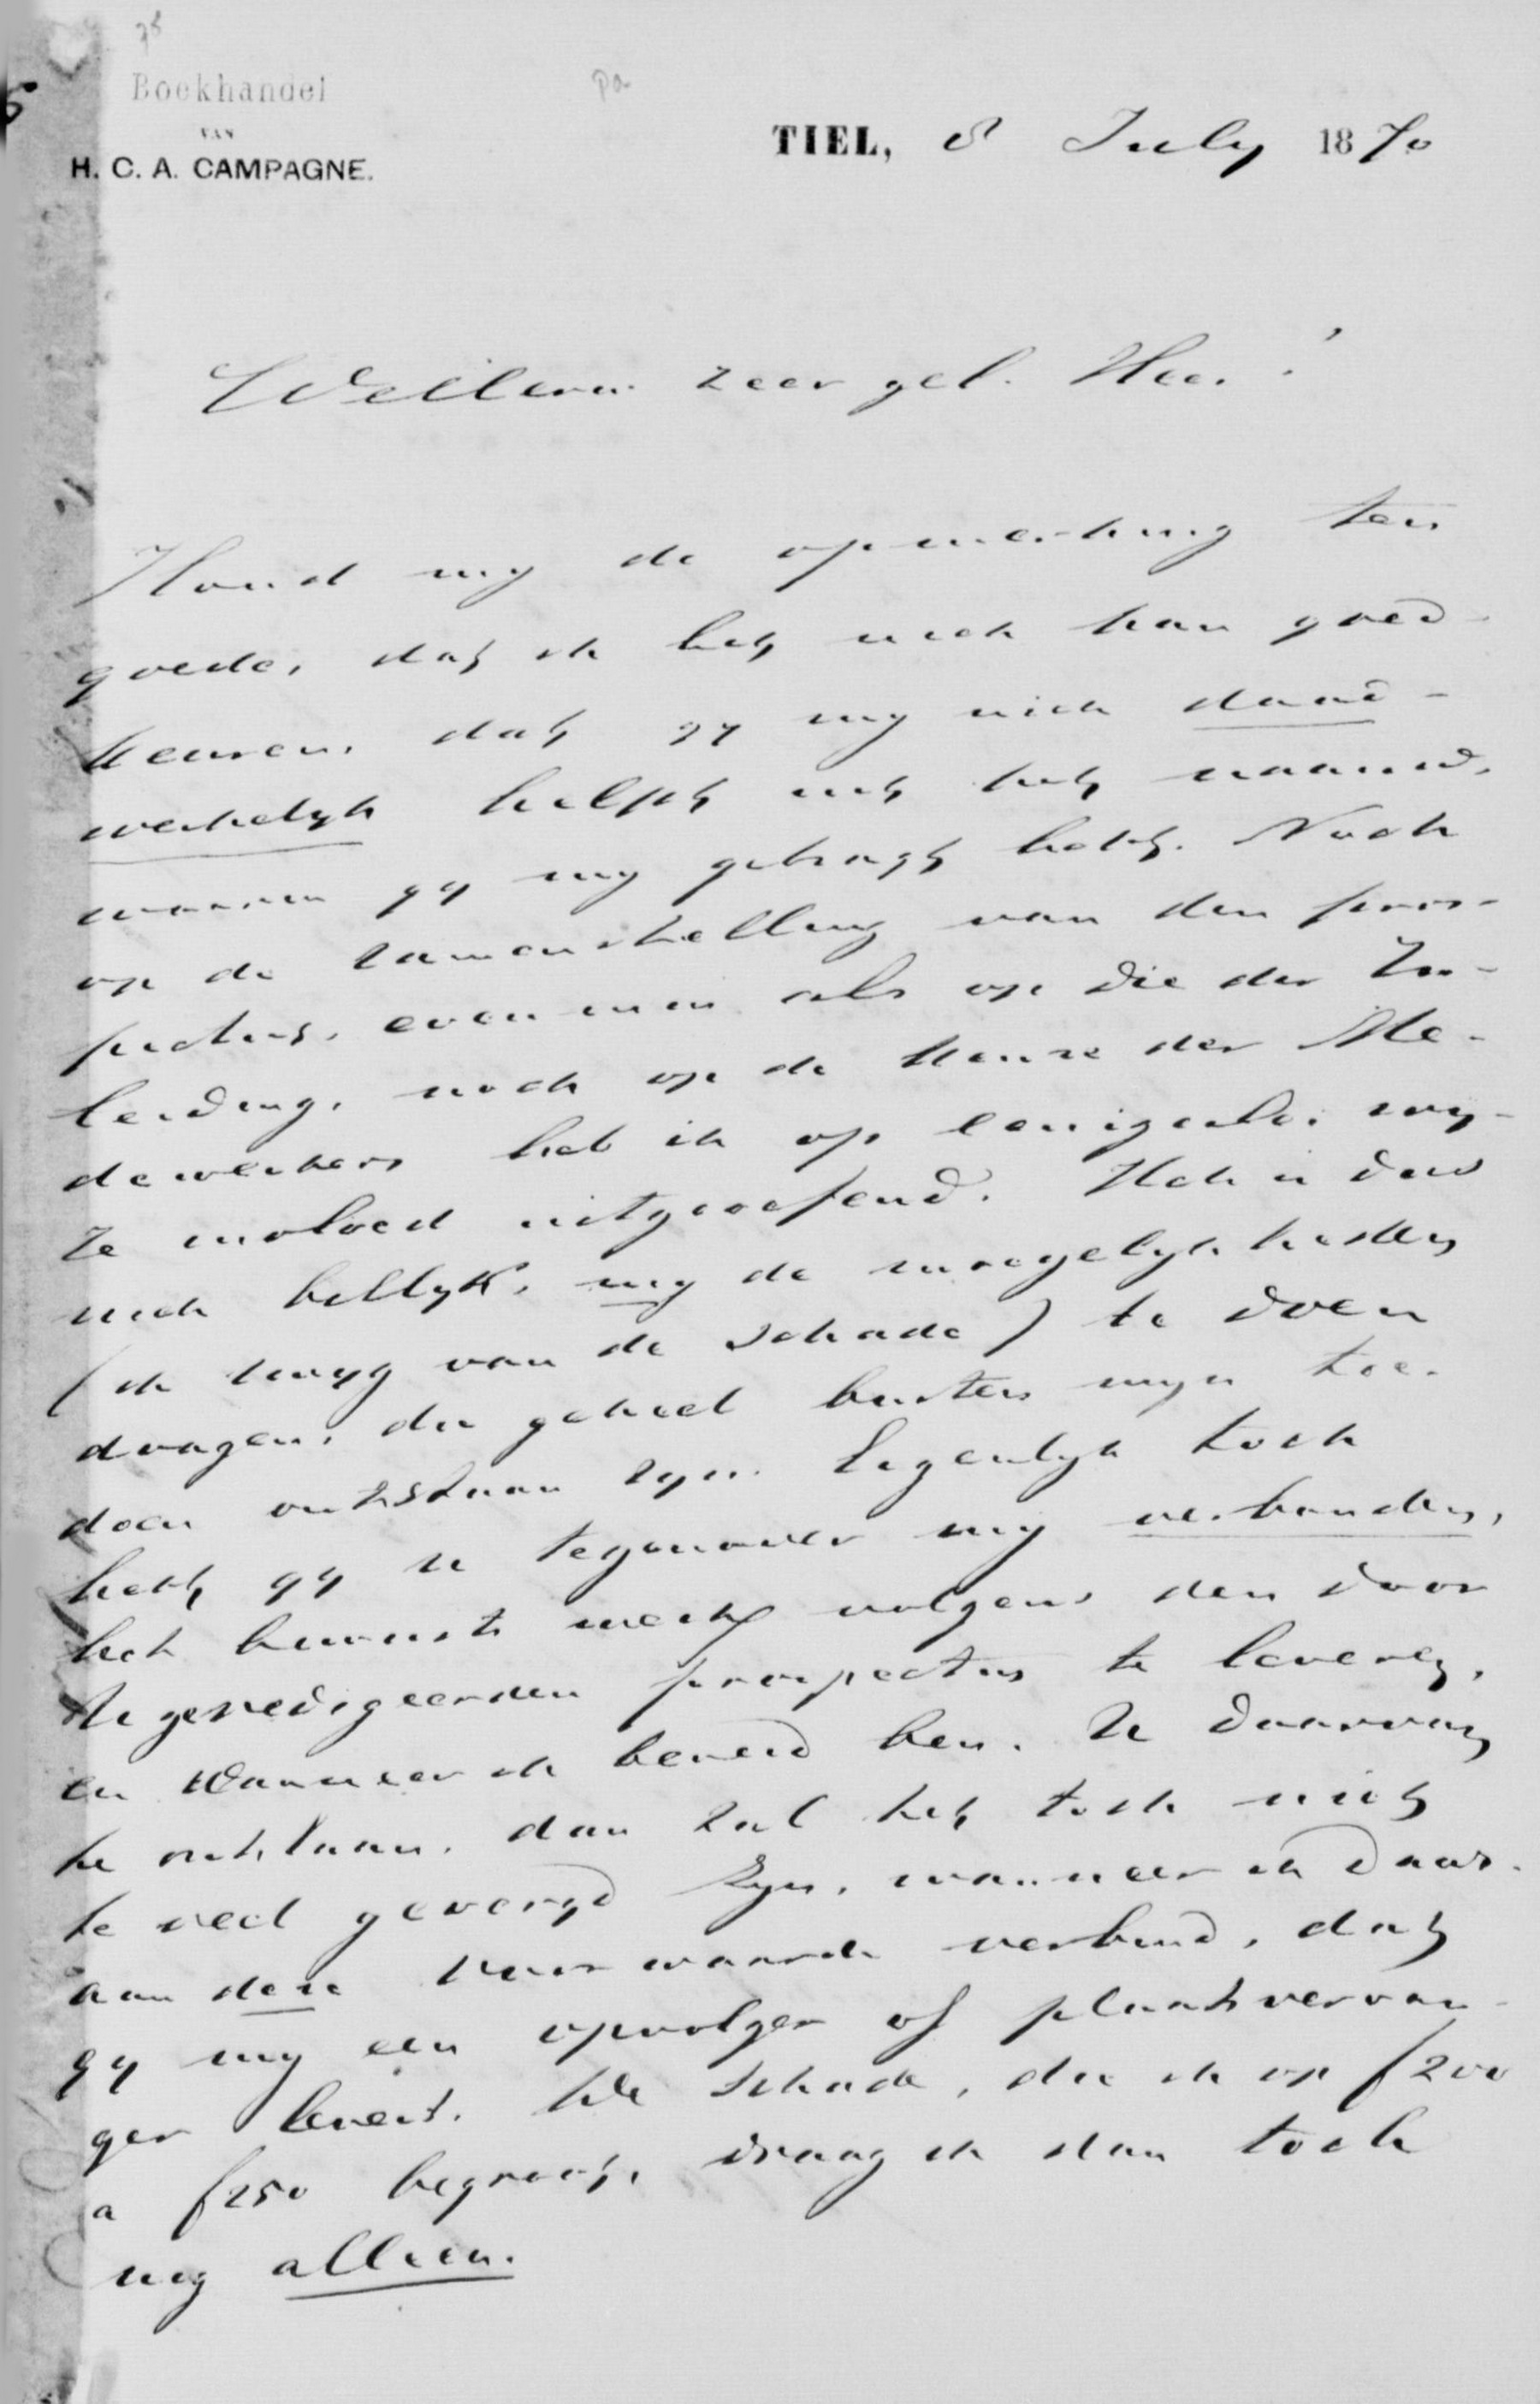 Boekhandel
VAN
H. C. A. CAMPAGNE.
TIEL, 8 July 1870
zeer gel. Heer!
Houd my de opmerking ten
goede, dat ik het niet kan goed-
keuren, dat gy my niet daad-
werkelyk helpt uit het naauw,
waarin gy my gebragt hebt. Noch
op de zamenstelling van den pros-
pectus, evenmin als op die der In-
leiding, noch op de keuze der Me-
dewerkers heb ik op eenigerlei wy-
ze invloed uitgeoefend. Het is dus
niet billyk, my de moeyelykheden
(ik zwyg van de schade) te doen
dragen, die geheel buiten myn toe-
doen ontstaan zyn. Eigenlyk toch
hebt gy u tegenover my verbonden,
het bewuste werk volgens den door
U geredigeerden prospectus te leveren,
en wanneer ik bereid ben, U daarvan
te ontslaan, dan zal het toch niet
te veel gevergd zyn, wanneer ik daar-
aan deze voorwaarde verbind, dat
gy my een opvolger of plaatsvervan-
ger levert. De schade, die ik op f200
a f250 begroot, draag ik dan toch
nog alleen.